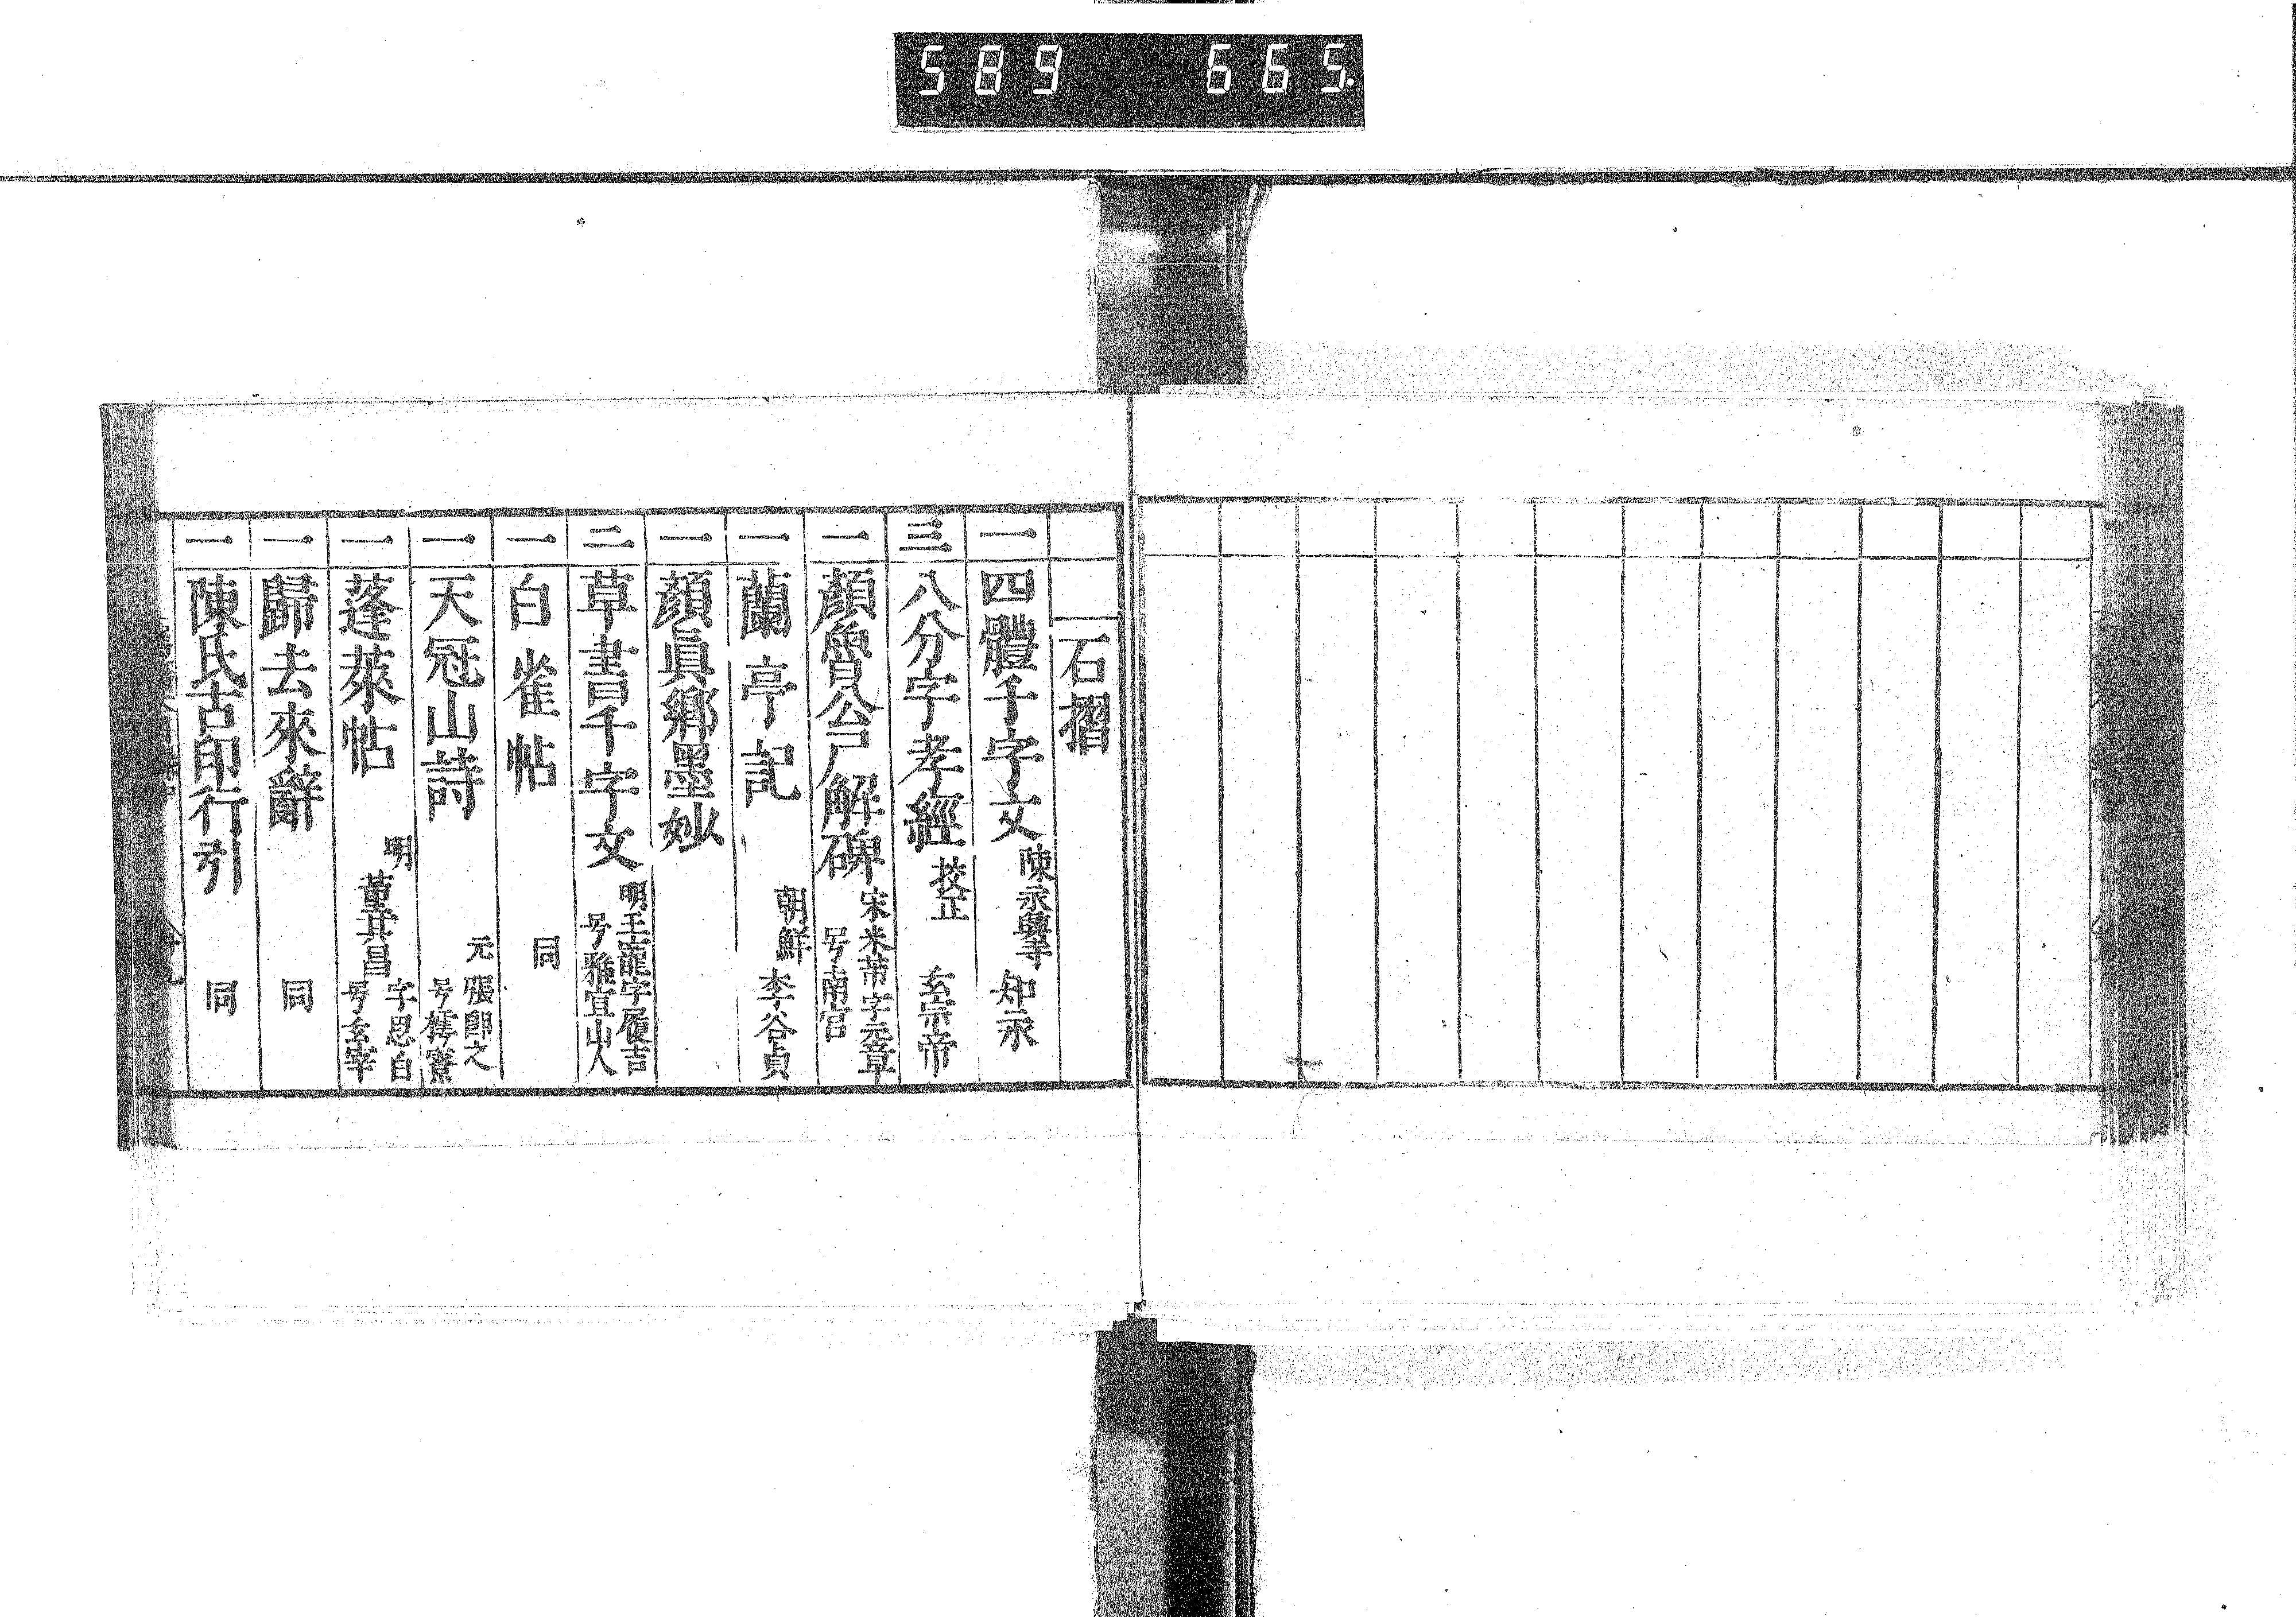 589 665.
石摺
一 四體千字文 陳永興寺 知永
三 八分字孝經 挍正 玄宗帝
一 顏魯公尸解碑 宋米芾字元章 号南宮
一 蘭亭記 朝鮮 李谷貞
一 顏眞鄉墨妙
二 草書千字文 明王寵字履吉 号雅宜山人
一 白雀帖 同
一 天冠山詩 元 張卽之 号樗寮
一 蓬萊帖 明 董其昌 字思白 号玄宰
一 歸去來辭 同
一 陳氏古印行引 同